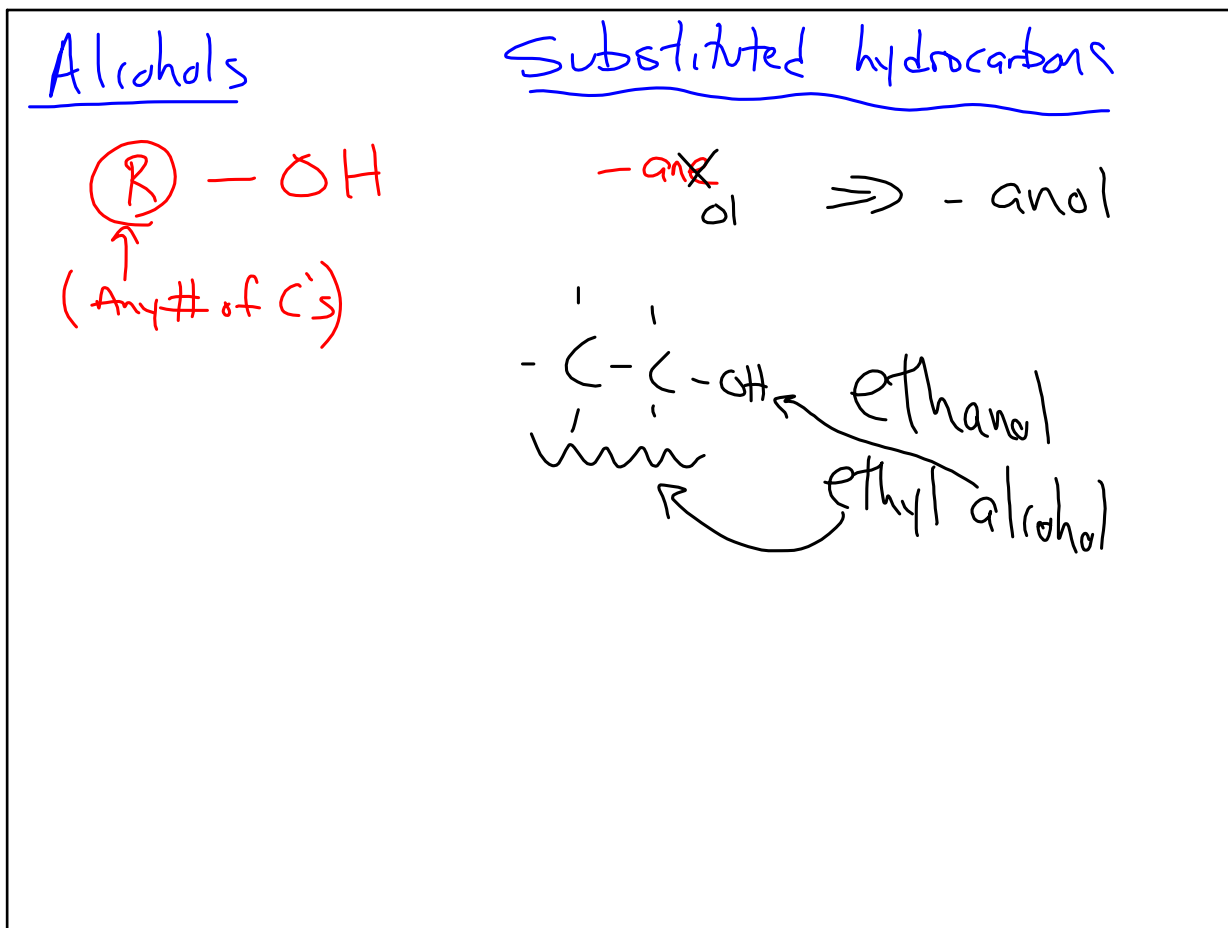 Alcohols
Substituted hydrocarbons
R - OH
(Any # of C's)
- ane
ol
⇒ - anol
- C - C - OH
ethanol
ethyl alcohol